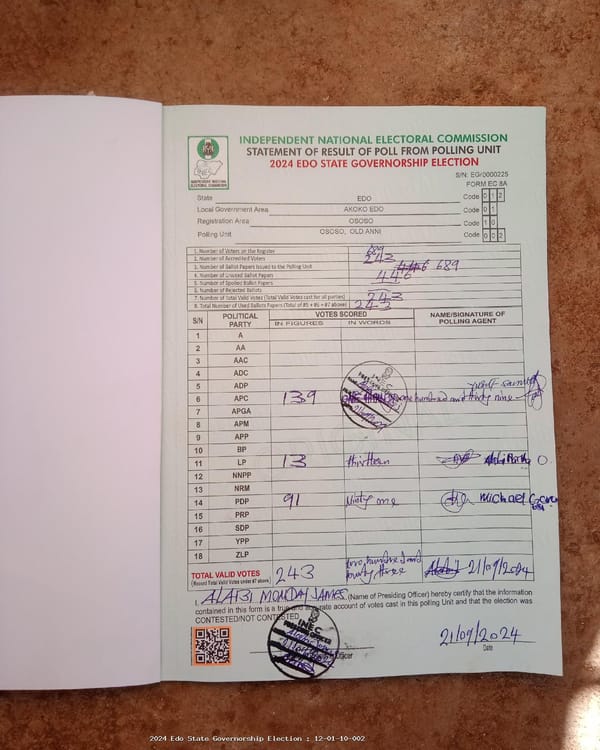 INDEPENDENT NATIONAL ELECTORAL COMMISSION
STATEMENT OF RESULT OF POLL FROM POLLING UNIT
2024 EDO STATE GOVERNORSHIP ELECTION
INEC
INDEPENDENT NATIONAL ELECTORAL COMMISSION
S/N: EG/0000225
FORM EC 8A
State EDO Code 0 1 2
Local Government Area AKOKO EDO Code 0 1
Registration Area OSOSO Code 1 0
Polling Unit OSOSO, OLD ANNI Code 0 0 2
1. Number of Voters on the Register 689
2. Number of Accredited Voters 243
3. Number of Ballot Papers Issued to the Polling Unit 689
4. Number of Unused Ballot Papers 446
5. Number of Spoiled Ballot Papers
6. Number of Rejected Ballots
7. Number of Total Valid Votes (Total Valid Votes cast for all parties) 243
8. Total Number of Used Ballots Papers (Total of #5 + #6 + #7 above) 243
S/N POLITICAL PARTY VOTES SCORED NAME/SIGNATURE OF POLLING AGENT
IN FIGURES IN WORDS
1 A
2 AA
3 AAC
4 ADC
5 ADP
6 APC 139 one hundred and thirty nine
7 APGA
8 APM
9 APP
10 BP
11 LP 13 thirteen
12 NNPP
13 NRM
14 PDP 91 Ninety one Michael
15 PRP
16 SDP
17 YPP
18 ZLP
TOTAL VALID VOTES 243 two hundred and fourty three 21/09/2024
(Record Total Valid Votes under #7 above)
I, ALABI MONDAY JAMES (Name of Presiding Officer) hereby certify that the information
contained in this form is a true and accurate account of votes cast in this polling Unit and that the election was
CONTESTED/NOT CONTESTED
INEC
PRESIDING OFFICER
Officer
21/09/2024
Date
2024 Edo State Governorship Election : 12-01-10-002